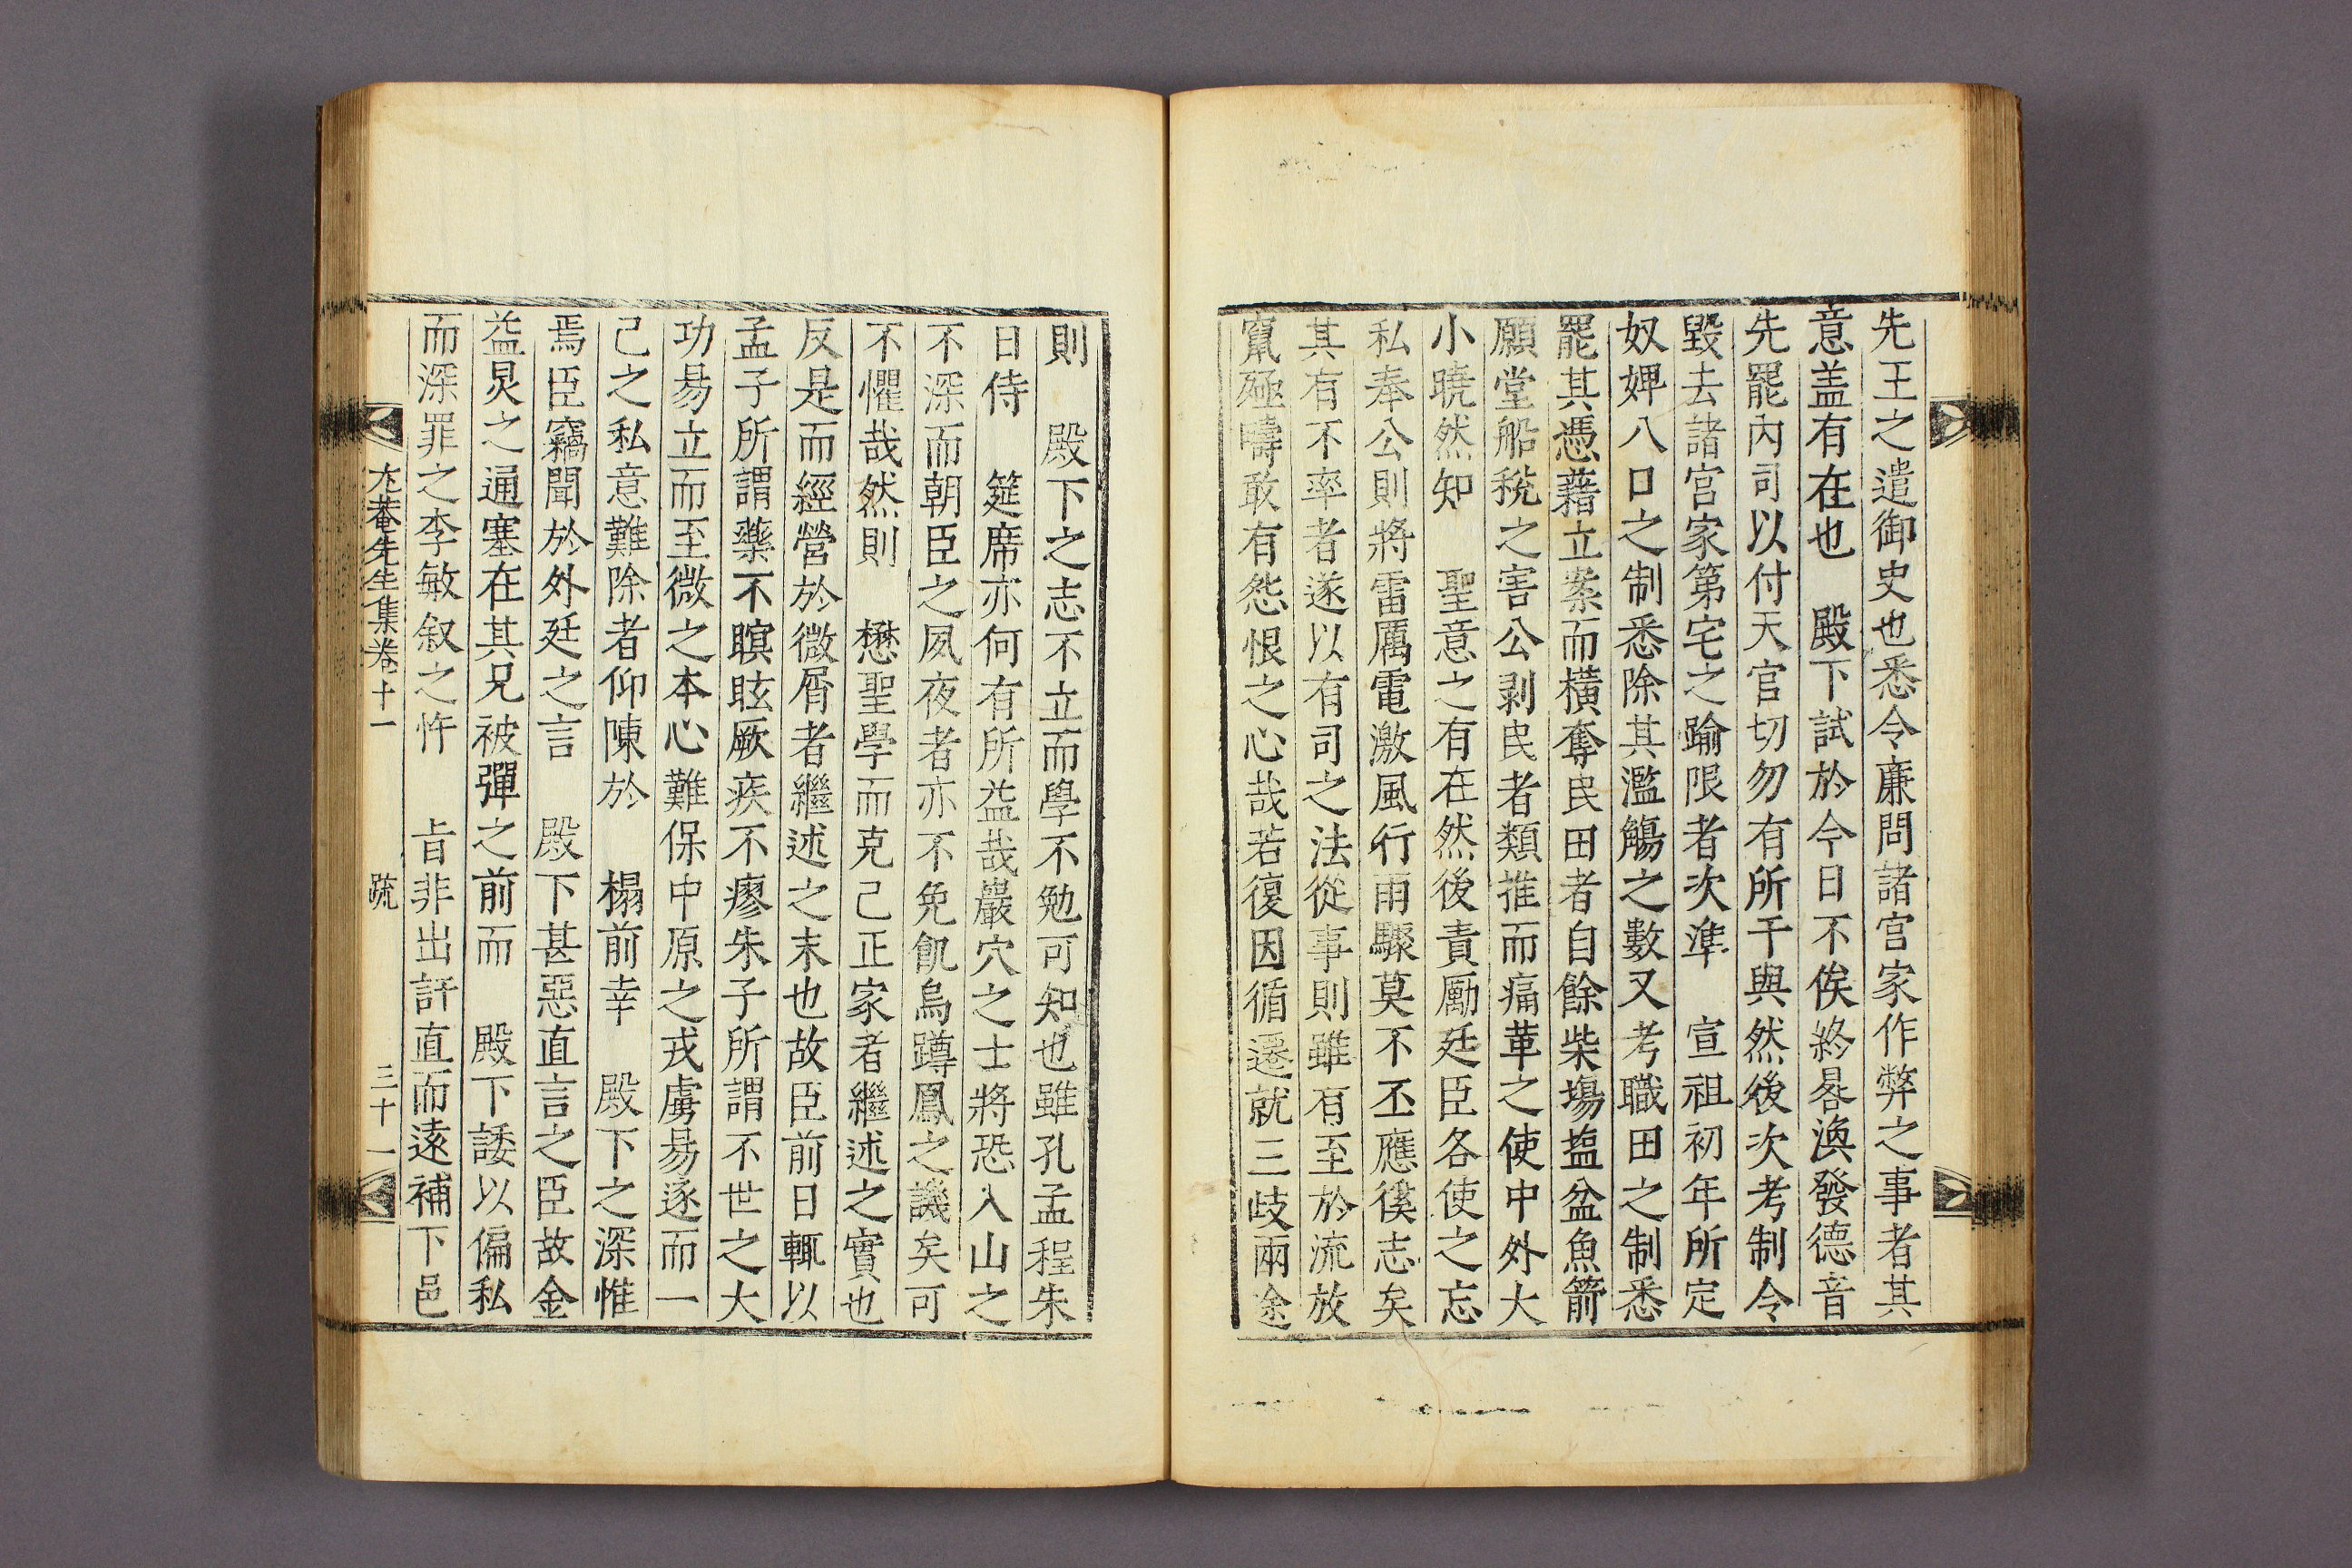 先王之遣御史也悉令廉問諸宮家作弊之事者其
意盖有在也　殿下試於今日不俟終晷渙發德音
先罷內司以付天官切勿有所干與然後次考制令
毀去諸宮家第宅之踰限者次準　宣祖初年所定
奴婢八口之制悉除其濫觴之數又考職田之制悉
罷其憑藉立案而橫奪民田者自餘柴場塩盆魚箭
願堂船稅之害公剥民者類推而痛革之使中外大
小曉然知　聖意之有在然後責勵廷臣各使之忘
私奉公則將雷厲電激風行雨驟莫不丕應徯志矣
其有不率者遂以有司之法從事則雖有至於流放
竄殛疇敢有怨恨之心哉若復因循遷就三歧兩途
則　殿下之志不立而學不勉可知也雖孔孟程朱
日侍　筵席亦何有所益哉巖穴之士將恐入山之
不深而朝臣之夙夜者亦不免飢烏蹲鳳之譏矣可
不懼哉然則　懋聖學而克己正家者繼述之實也
反是而經營於微屑者繼述之末也故臣前日輒以
孟子所謂藥不瞑眩厥疾不瘳朱子所謂不世之大
功易立而至微之本心難保中原之戎虜易逐而一
己之私意難除者仰陳於　榻前幸　殿下之深惟
焉臣竊聞於外廷之言　殿下甚惡直言之臣故金
益炅之通塞在其兄被彈之前而　殿下諉以偏私
而深罪之李敏叙之忤　旨非出訐直而遠補下邑
尤菴先生集卷十一　疏　三十一